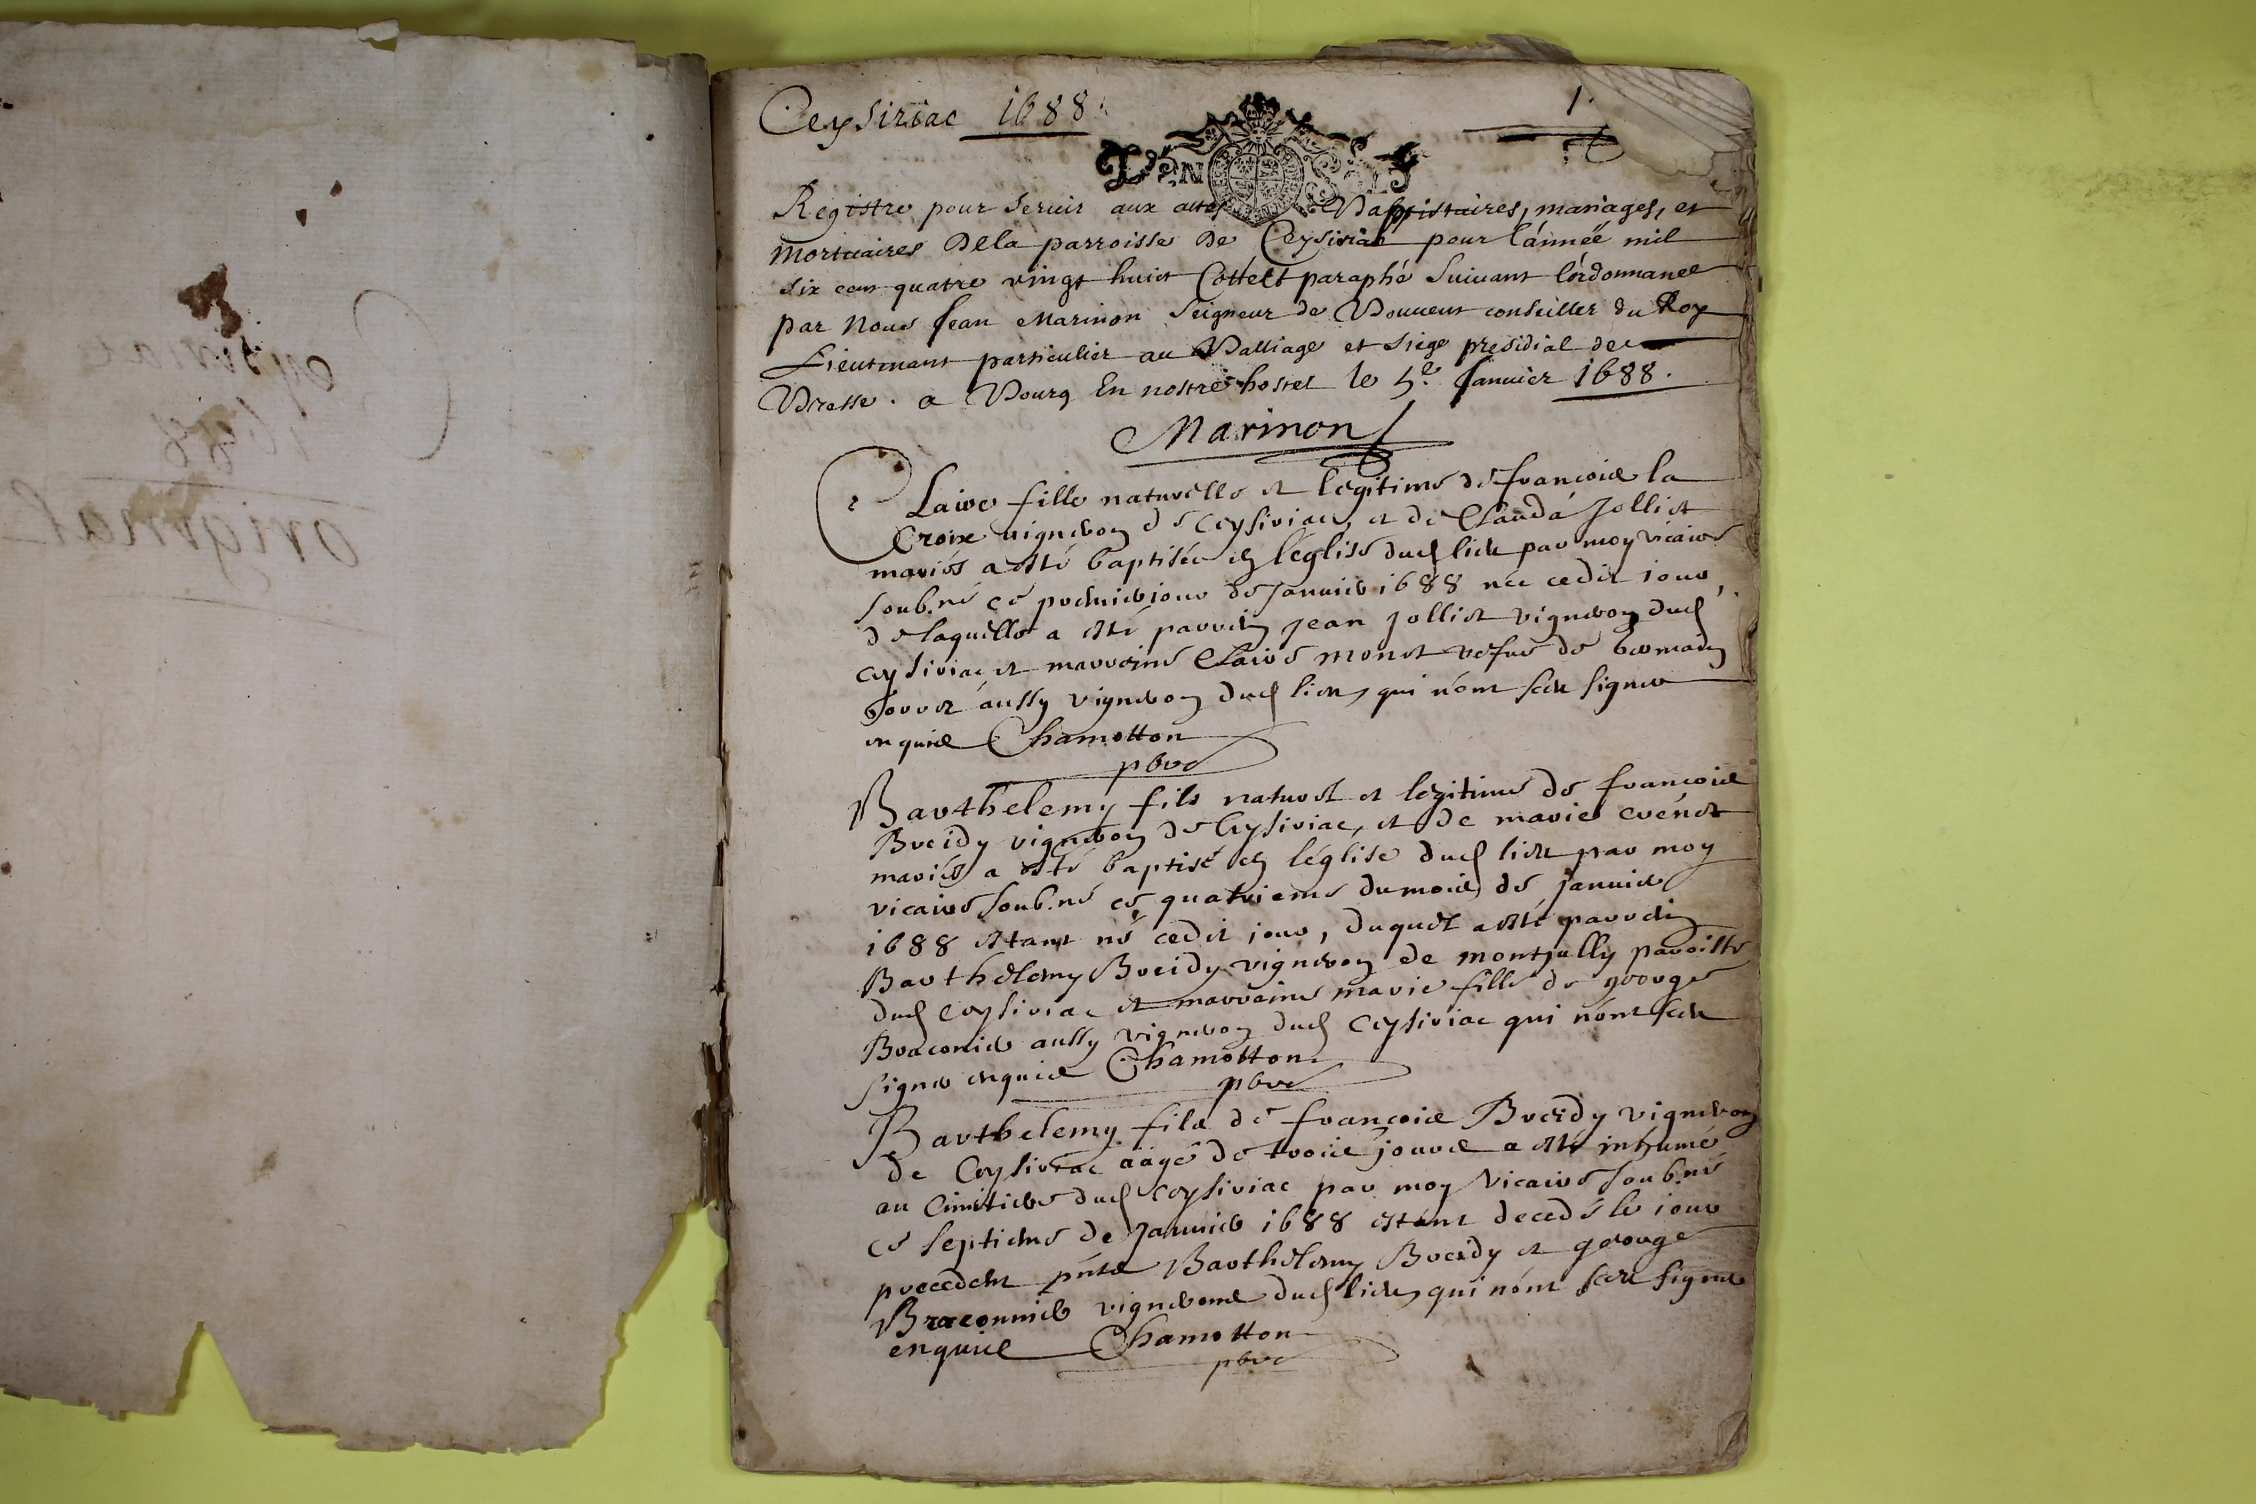 Ceysiriac 1688
1.
DEN SOLS
Registre pour seruir aux actes Baptistaires, mariages, et
mortuaires dela parroisse de Ceysiriac pour l'année mil
six cens quatre vingt huict Cotté et paraphé suiuant l'ordonnance
par Nous Jean Marinon seigneur de conseiller du Roy
Lieutenant particulier au Balliage et siege presidial de
Bresse. a Bourg En nostre hostel le 5e. Januier 1688.
Marinon
Claire fille naturelle et legitime de francois la
Croix vigneron de Ceysiriac, et de Clauda Jolliet
mariés a esté baptisée en l'église dud lieu par moy vicaire
soub.né ce premier jour de Januier 1688 née cedit jour,
de laquelle a esté parrein jean jolliet vigneron dud
ceysiriac et marreine Claire monet vefue de
aussy vigneron dud lieu, qui n'ont sceu signer
enquis Chamotton
pbre
Barthelemy fils naturel et legitime de francois
Breidy vigneron de Ceysiriac, et de marie evénot
mariés a esté baptisé en l'église dud lieu par moy
vicaire soub.né ce quatrieme du mois de januier
1688 estant né cedit jour, duquel a esté parrein
Barthelemy Breidy vigneron de montjully paroisse
dud Ceysiriac et marreine marie fille de george
Braconier aussy vigneron dud Ceysiriac qui n'ont sceu
signer enquis Chamotton
pbre
Barthelemy fils de francois Breidy vigneron
de Ceysiriac aagé de trois jours a esté inhumé
au Cimitiere dud Ceysiriac par moy vicaire soub.né
ce septieme de Januier 1688 estant decedé le jour
precedent pnts Barthelemy Breidy et george
Braconnier vignerons dud lieu, qui n'ont sceu signer
enquis Chamotton
pbre
Ceysiriac
1688
original